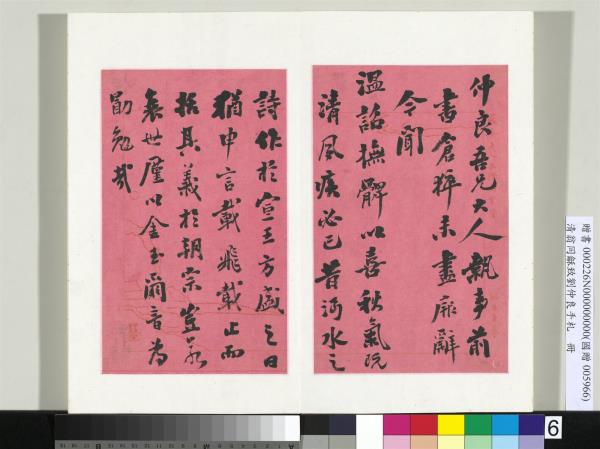 仲良吾兄大人執事前
書倉猝未盡廉辭
令聞
溫諮撫髀以喜秋氣既
清風疾必已昔沔水之
詩作於宣王方盛之日
猶申言載飛載止而
括其義於朝宗豈若
衰世廑以金玉爾音為
勖勉哉
贈書 000226N000000000(國贈 005966)
清翁同龢致劉仲良手札 冊
6